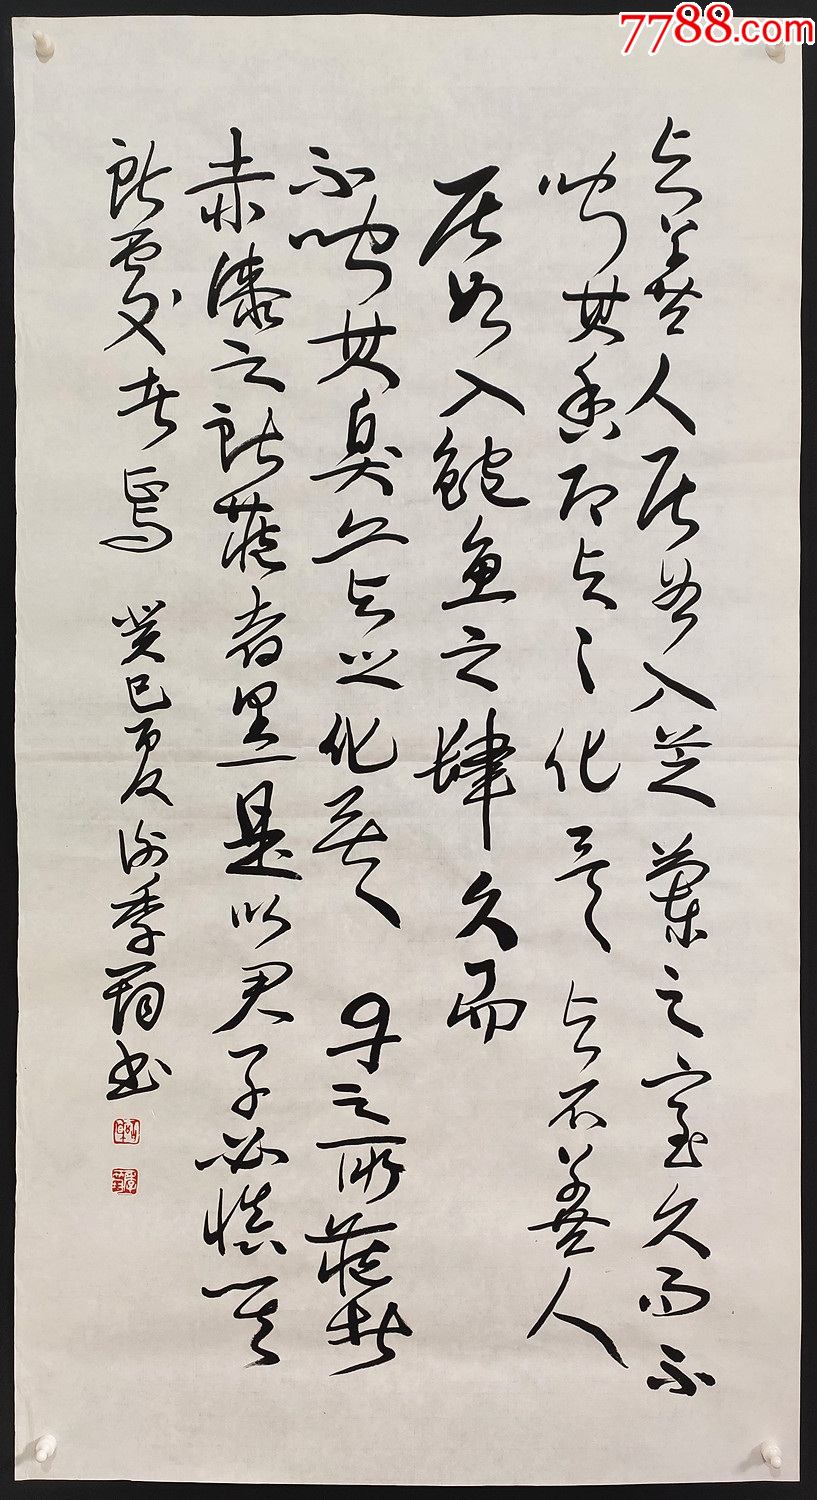 7788.com
與善人居如入芝蘭之室久而不
聞其香即與之化矣與不善人
居如入鮑魚之肆久而
不聞其臭亦與之化矣丹之所藏者
赤漆之所藏者黑是以君子必慎其
所處者焉癸巳夏季書